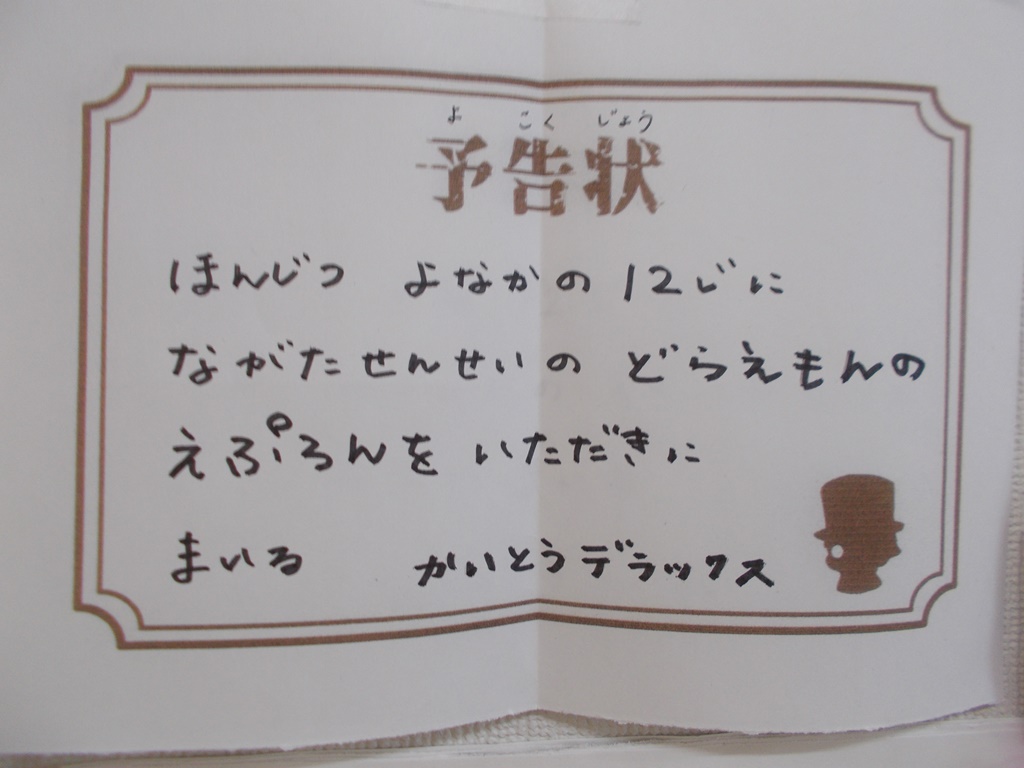 よ こく じょう
予告状
ほんじつ よなかの 12じに
ながたせんせいの どらえもんの
えぷろんを いただきに
まいる かいとうデラックス